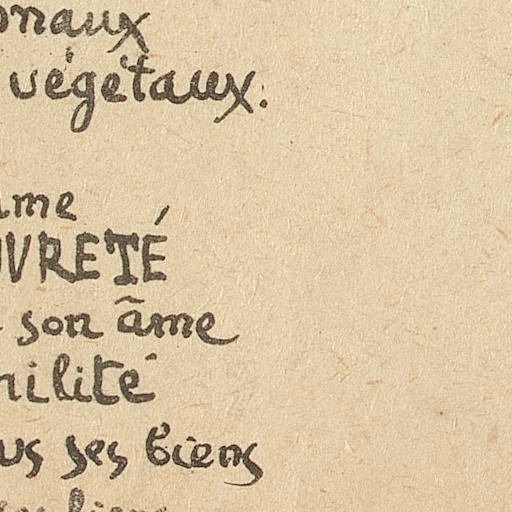 onaux
végétaux.
ame
UVRETÉ
son âme
ilité
us ses biens